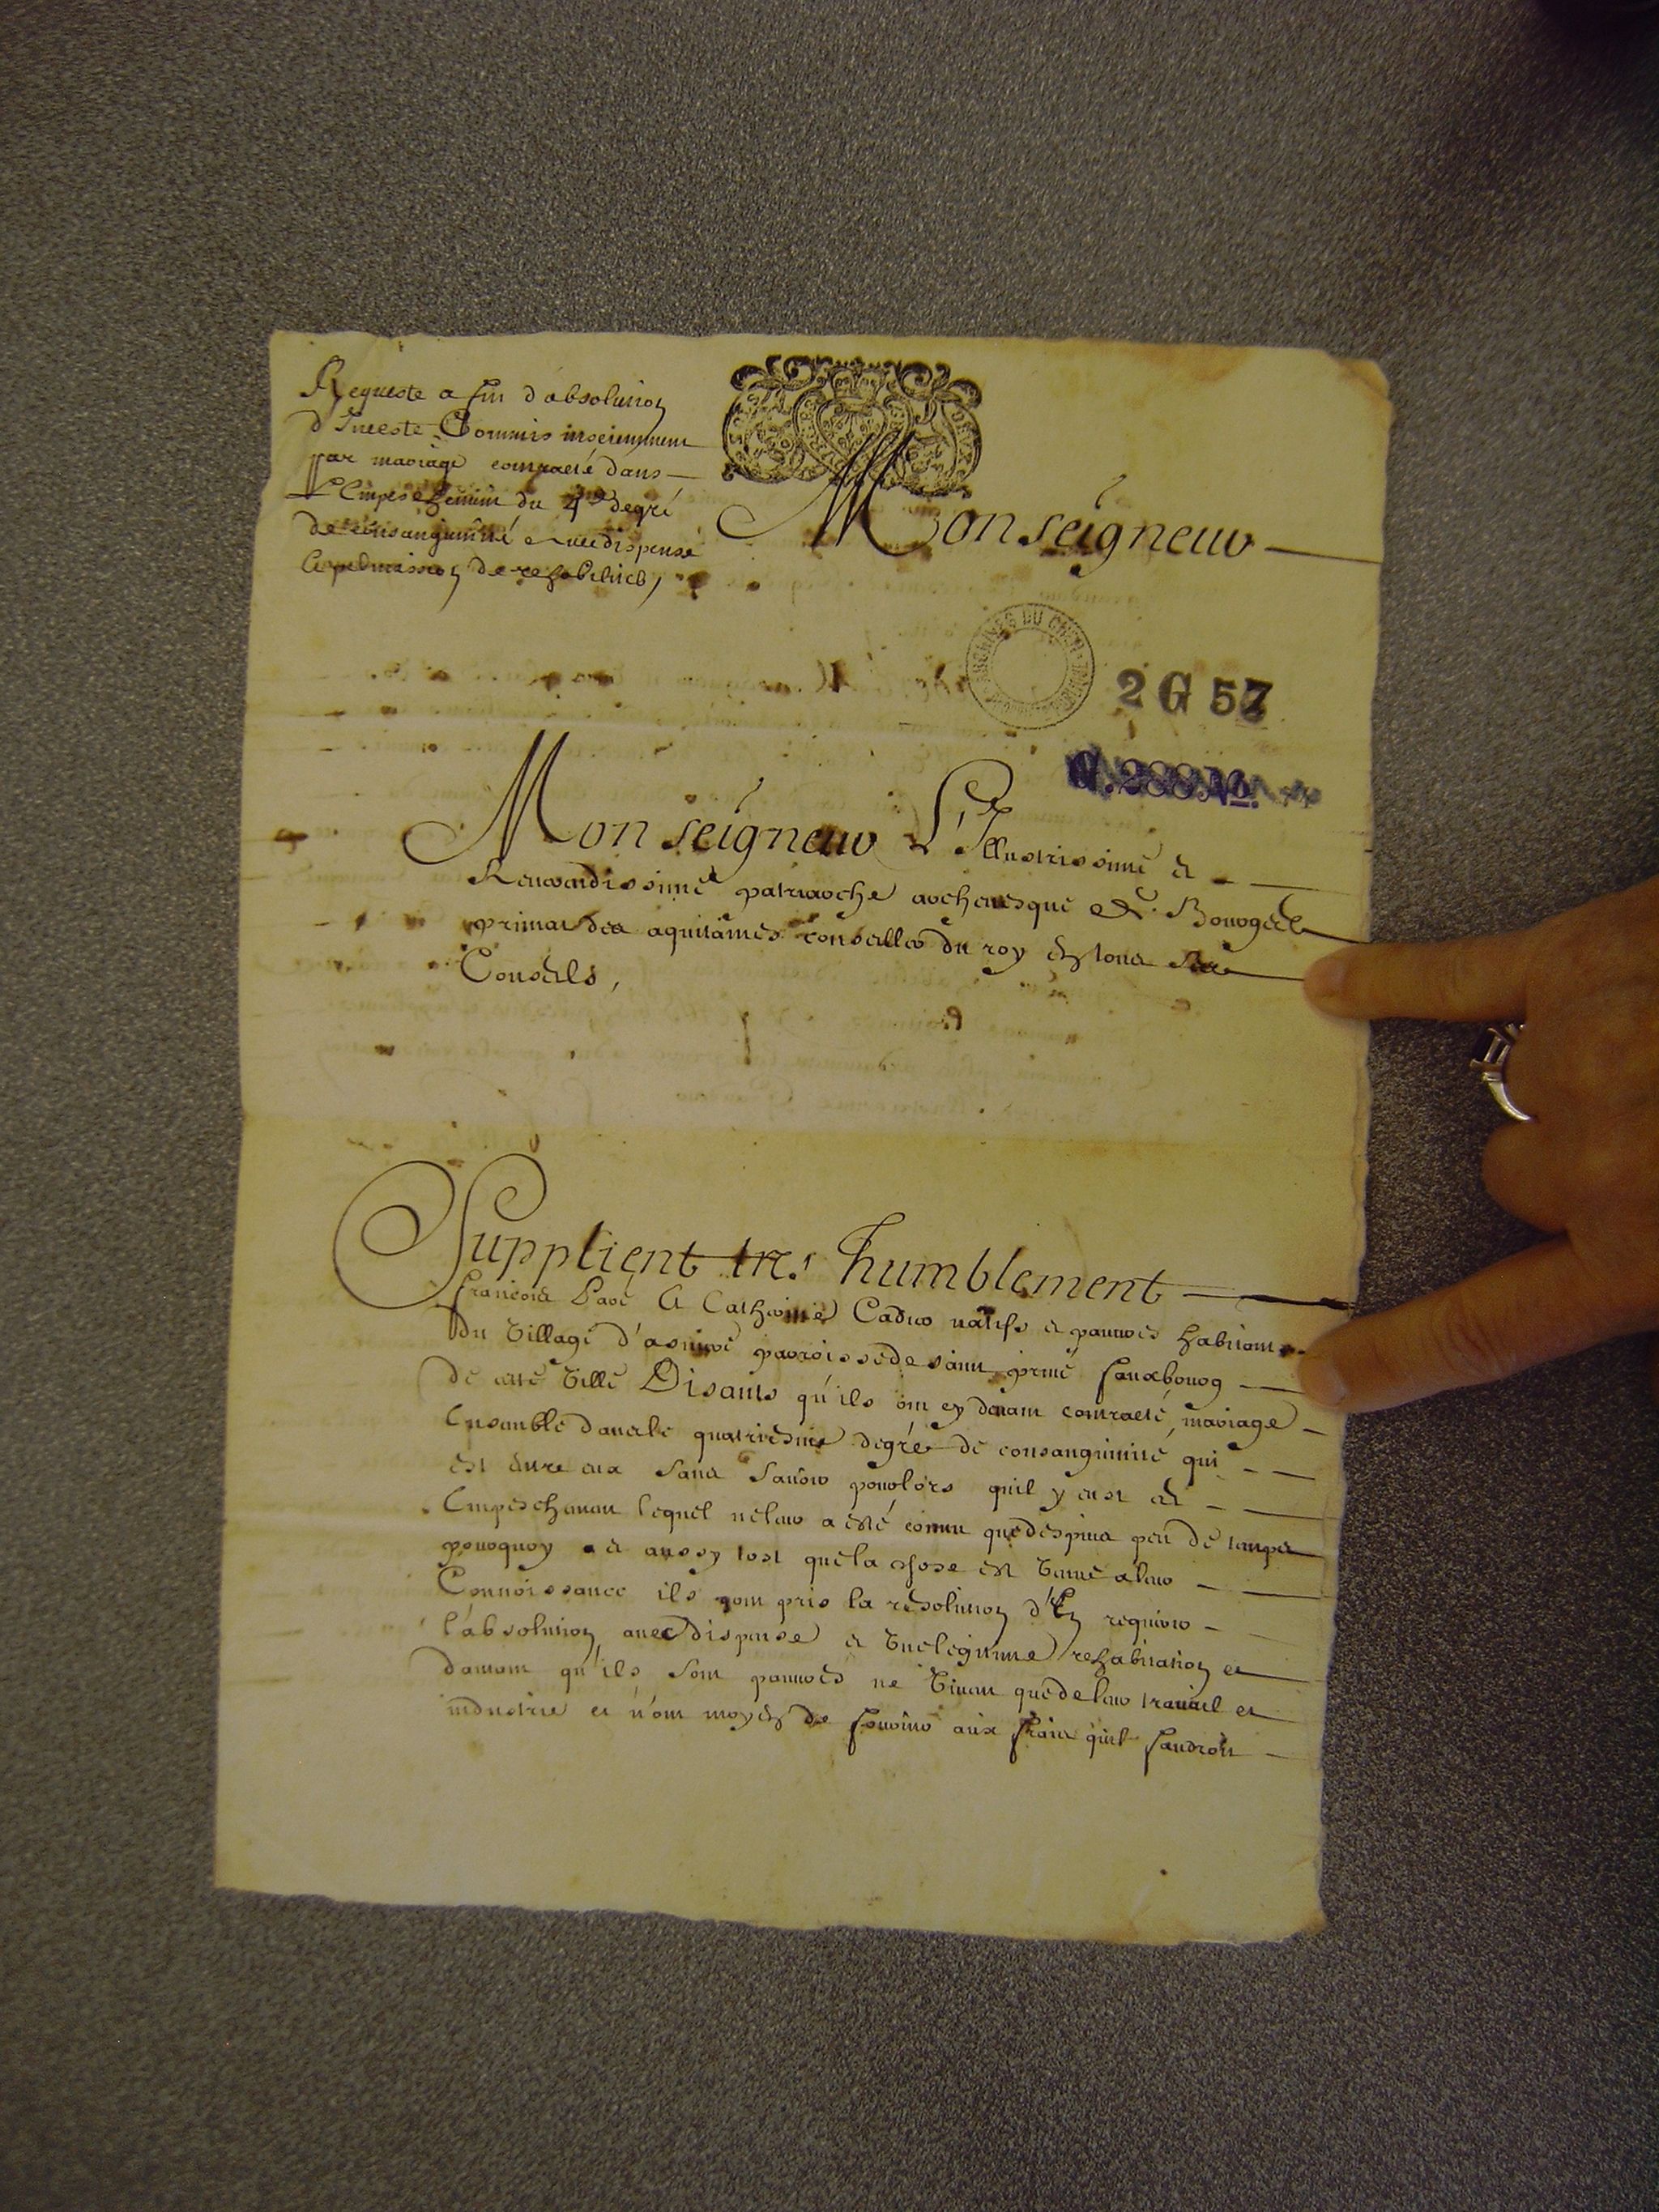 Requeste a fin d'absolution
d'Inceste Commis insciemment
par mariage contracté dans
l'Empeschemint du 4e degré
de consanguinité avec dispense
et permission de rehabiliter,
Monseigneur
ARCHIVES DU CHER
2 G 57
G. 288 No.
Monseigneur L'Illustrissime et
Reuerendissime patriarche archeuesque de Bourges
primat des aquitaines conseiller du roy en tous ses
Conseils,
Supplient tres humblement
francois Paré et Catherine Cadur natifs et pauures habitans
du Village d'asnieres parroisse de saint priué fauxbourg
de cette Ville Disants qu'ils ont cy deuant contracté mariage
Ensemble dans le quatriesme degré de consanguinité qui
est entre eux sans sauoir pour lors quil y eust cet
Empeschement lequel ne leur a esté connu que despuis peu de temps
pourquoy et aussy tost que la chose est Venue a leur
Connoissance ils ont pris la resolution d'En requerir
l'absolution auec dispense et Vne legitime rehabitation et
dautant qu'ils sont pauures ne Viuant que de leur trauail et
industrie et n'ont moyen de fournir aux frais quil faudroit